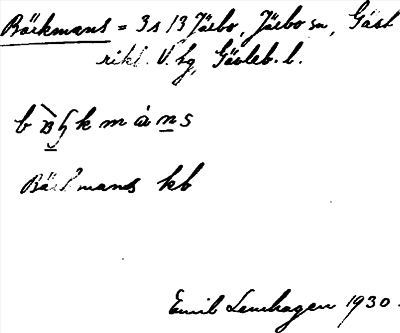 Bäckmans = 3 s 13 Järbo, Järbo sn, Gästrikl. V. tg, Gävleb. l.
Bäckmans kb
Emil Lenhagen 1930.